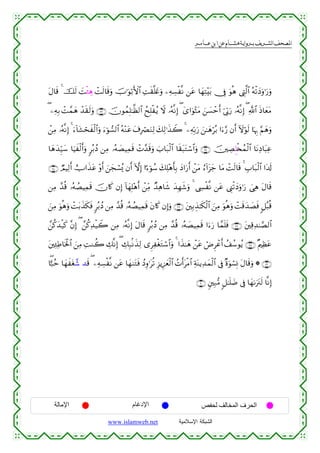 المصحف الشريف برواية هشام عن ابن عامر
وَرَٰوَدَتْهُ ٱلَّتِى هُوَ فِى بَيْتِهَا عَن نَّفْسِهِۦ وَغَلَّقَتِ ٱلْأَبْوَٰبَ وَقَالَتْ هِئْتَ لَكَ ۚ قَالَ
مَعَاذَ ٱللَّهِ ۖ إِنَّهُۥ رَبِّىٓ أَحْسَنَ مَثْوَاىَ ۖ إِنَّهُۥ لَا يُفْلِحُ ٱلظَّٰلِمُونَ ۝ وَلَقَدْ هَمَّتْ بِهِۦ ۖ
وَهَمَّ بِهَا لَوْلَآ أَن رَّءَا بُرْهَٰنَ رَبِّهِۦ ۚ كَذَٰلِكَ لِنَصْرِفَ عَنْهُ ٱلسُّوٓءَ وَٱلْفَحْشَآءَ ۚ إِنَّهُۥ مِنْ
عِبَادِنَا ٱلْمُخْلِصِينَ ۝ وَٱسْتَبَقَا ٱلْبَابَ وَقَدَّتْ قَمِيصَهُۥ مِن دُبُرٍ وَأَلْفَيَا سَيِّدَهَا
لَدَا ٱلْبَابِ ۚ قَالَتْ مَا جَزَآءُ مَنْ أَرَادَ بِأَهْلِكَ سُوٓءًا إِلَّآ أَن يُسْجَنَ أَوْ عَذَابٌ أَلِيمٌ ۝
قَالَ هِىَ رَٰوَدَتْنِى عَن نَّفْسِى ۚ وَشَهِدَ شَاهِدٌ مِّنْ أَهْلِهَآ إِن كَانَ قَمِيصُهُۥ قُدَّ مِن
قُبُلٍ فَصَدَقَتْ وَهُوَ مِنَ ٱلْكَٰذِبِينَ ۝ وَإِن كَانَ قَمِيصُهُۥ قُدَّ مِن دُبُرٍ فَكَذَبَتْ وَهُوَ مِنَ
ٱلصَّٰدِقِينَ ۝ فَلَمَّا رَءَا قَمِيصَهُۥ قُدَّ مِن دُبُرٍ قَالَ إِنَّهُۥ مِن كَيْدِكُنَّ ۖ إِنَّ كَيْدَكُنَّ
عَظِيمٌ ۝ يُوسُفُ أَعْرِضْ عَنْ هَٰذَا ۚ وَٱسْتَغْفِرِى لِذَنۢبِكِ ۖ إِنَّكِ كُنتِ مِنَ ٱلْخَاطِـِٔينَ
۝ ۞ وَقَالَ نِسْوَةٌ فِى ٱلْمَدِينَةِ ٱمْرَأَتُ ٱلْعَزِيزِ تُرَٰوِدُ فَتَىٰهَا عَن نَّفْسِهِۦ ۖ قَدْ شَغَفَهَا حُبًّا ۖ
إِنَّا لَنَرَىٰهَا فِى ضَلَٰلٍ مُّبِينٍ ۝
الحرف المخالف لحفص
الإدغام
الإمالة
الشبكة الإسلامية www.islamweb.net